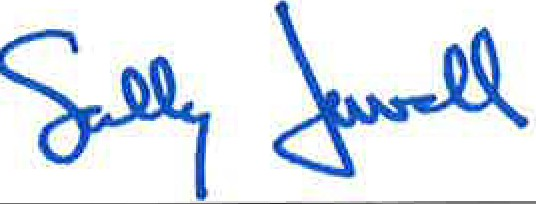 Sally Jewell